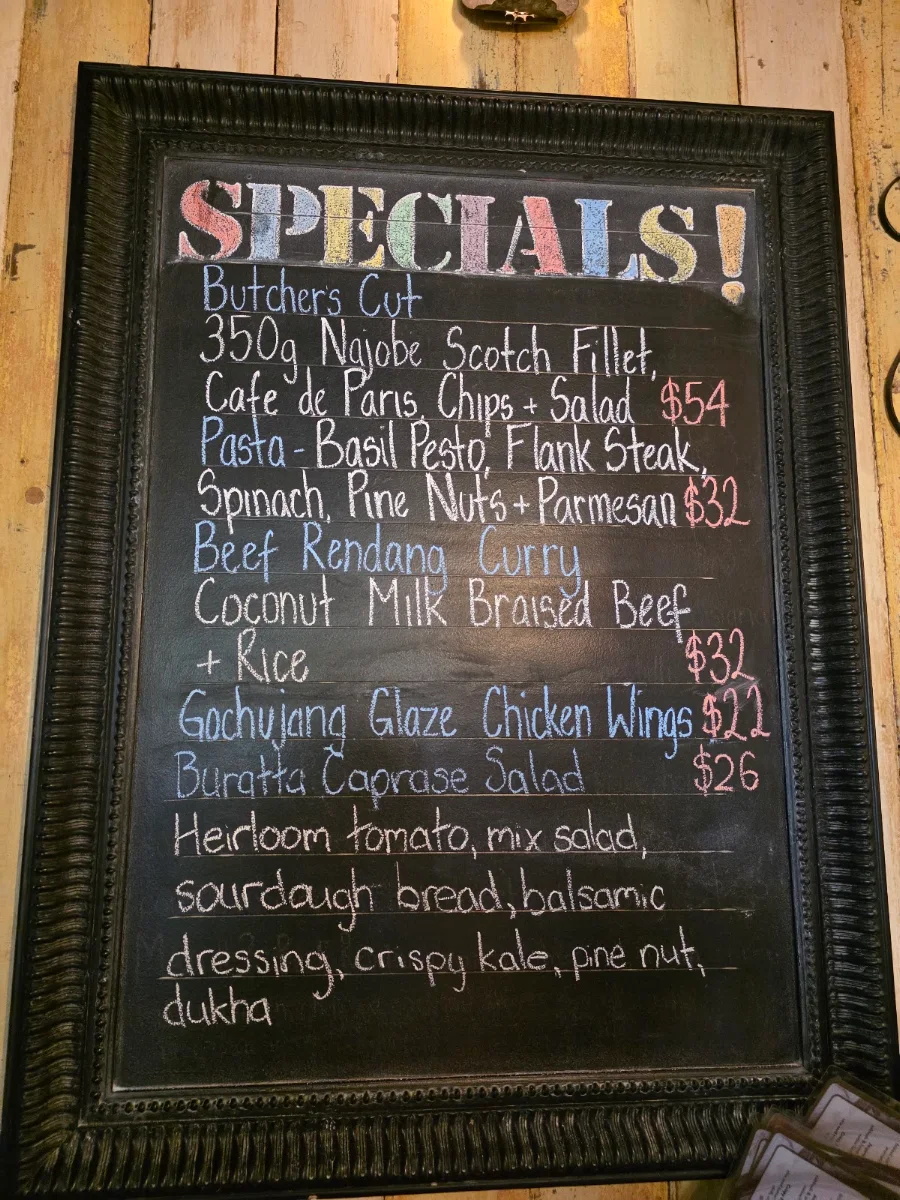 SPECIALS!
Butcher's Cut
350g Najobe Scotch Fillet,
Cafe de Paris, Chips + Salad $54
Pasta - Basil Pesto, Flank Steak,
Spinach, Pine Nuts + Parmesan $32
Beef Rendang Curry
Coconut Milk Braised Beef
+ Rice $32
Gochujang Glaze Chicken Wings $22
Buratta Caprase Salad $26
Heirloom tomato, mix salad,
sourdough bread, balsamic
dressing, crispy kale, pine nut,
dukha